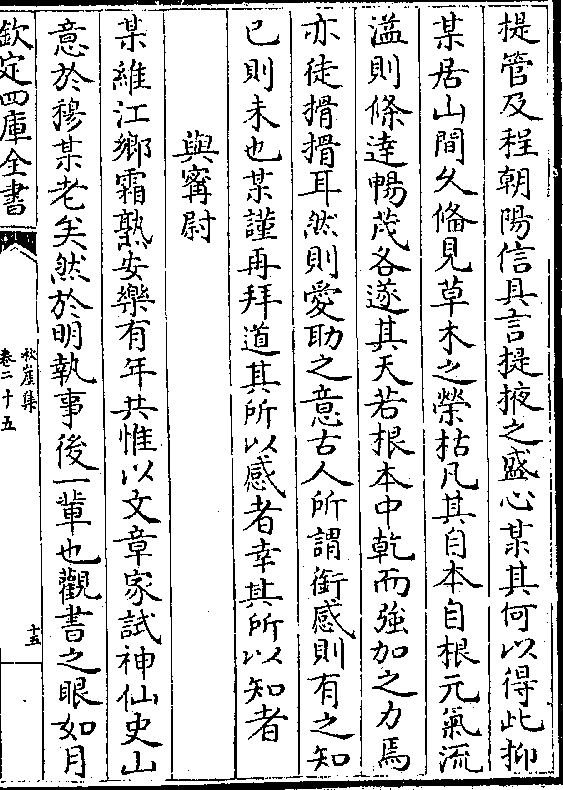 提管及程朝陽信具言提掖之盛心某其何以得此抑
某居山間久備見草木之榮枯凡其自本自根元氣流
溢則條達暢茂各遂其天若根本中乾而強加之力焉
亦徒搰搰耳然則愛助之意古人所謂銜感則有之知
已則未也某謹再拜道其所以感者幸其所以知者
與寗尉
某維江鄉霜熟安樂有年共惟以文章家試神仙史山
意於穆某老矣然於明執事後一輩也觀書之眼如月
欽定四庫全書
秋崖集
卷二十五
十五